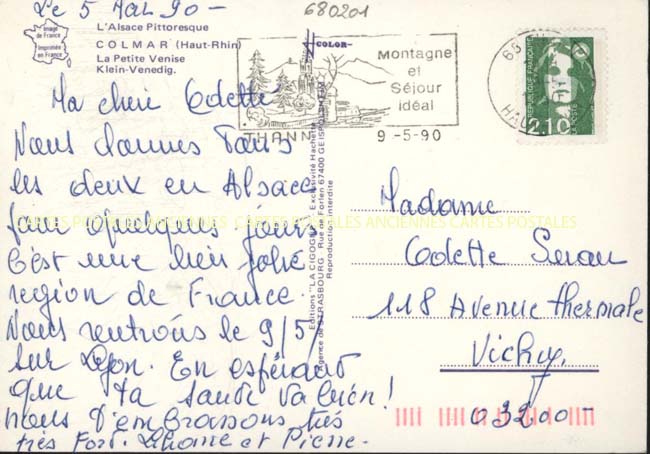 Le 5 Mai 90 -
680201
Image de France
Imprimée en France
L'Alsace Pittoresque
COLMAR (Haut-Rhin)
La Petite Venise
Klein-Venedig.
COLOR
Montagne
et
Séjour
idéal
THANN
9-5-90
68
HAU
REPUBLIQUE FRANÇAISE
2,10
LA POSTE
Ma chère Odette
Nous sommes Partis
les deux en Alsace
pour quelques jours
C'est une bien jolie
region de France.
Nous rentrons le 9/5
sur Lyon. En espérant
que ta santé va bien!
nous t'embrassons très
très Fort. et Pierre.
Editions "LA CIGOGNE" Exclusivité Hachette
Agence de STRASBOURG Rue de Forlen 67400 GEISPOLSHEIM
Reproduction interdite
CARTES POSTALES ANCIENNES CARTES POSTALES ANCIENNES CARTES POSTALES
Madame
Odette
118 Avenue thermale
Vichy
03200 -